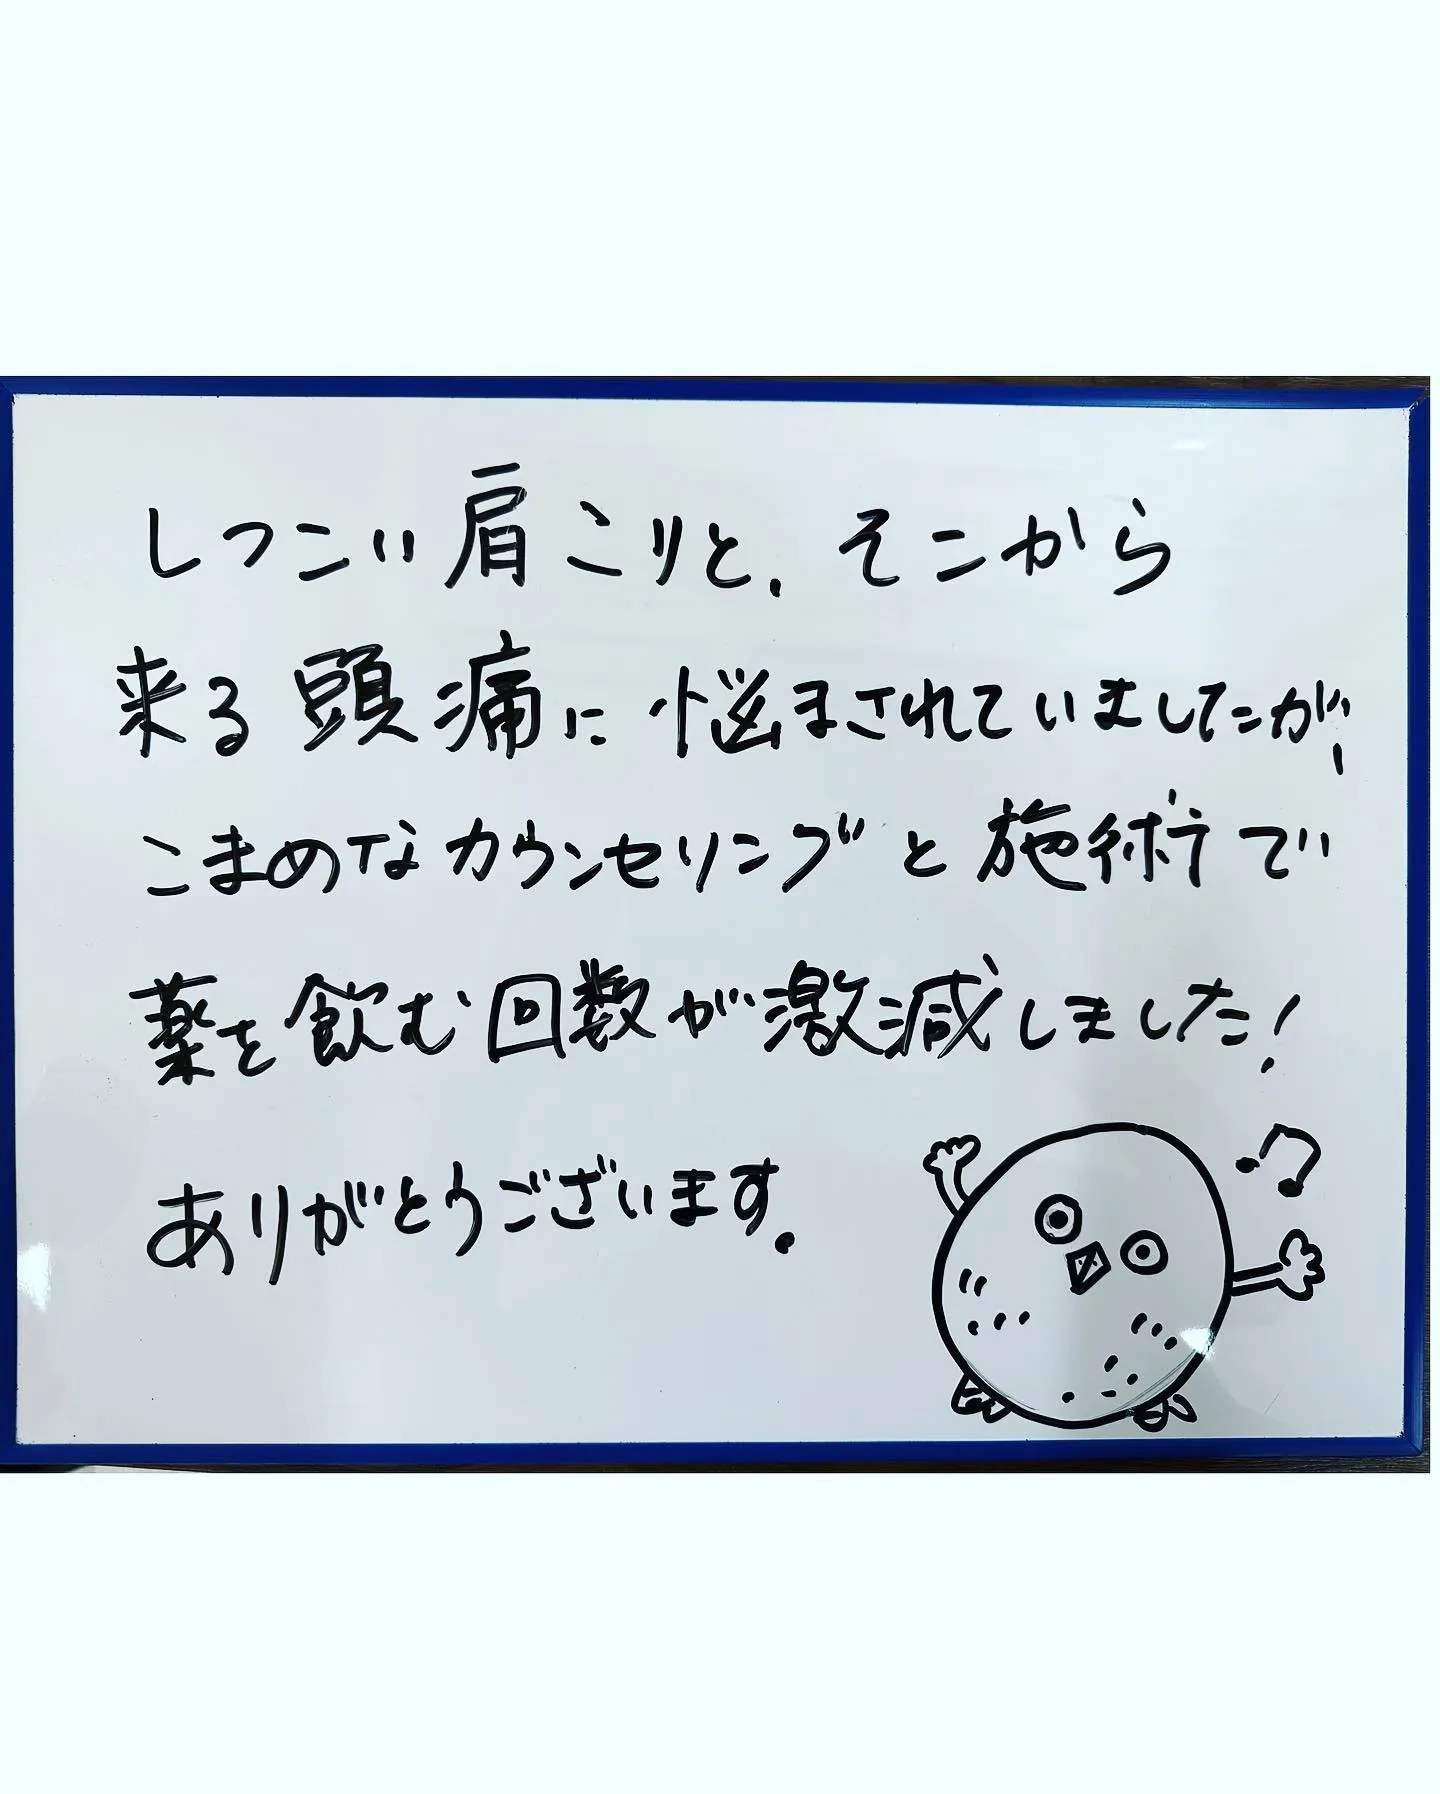 しつこい肩こりと、そこから
来る頭痛に悩まされていましたが、
こまめなカウンセリングと施術で
薬を飲む回数が激減しました!
ありがとうございます。